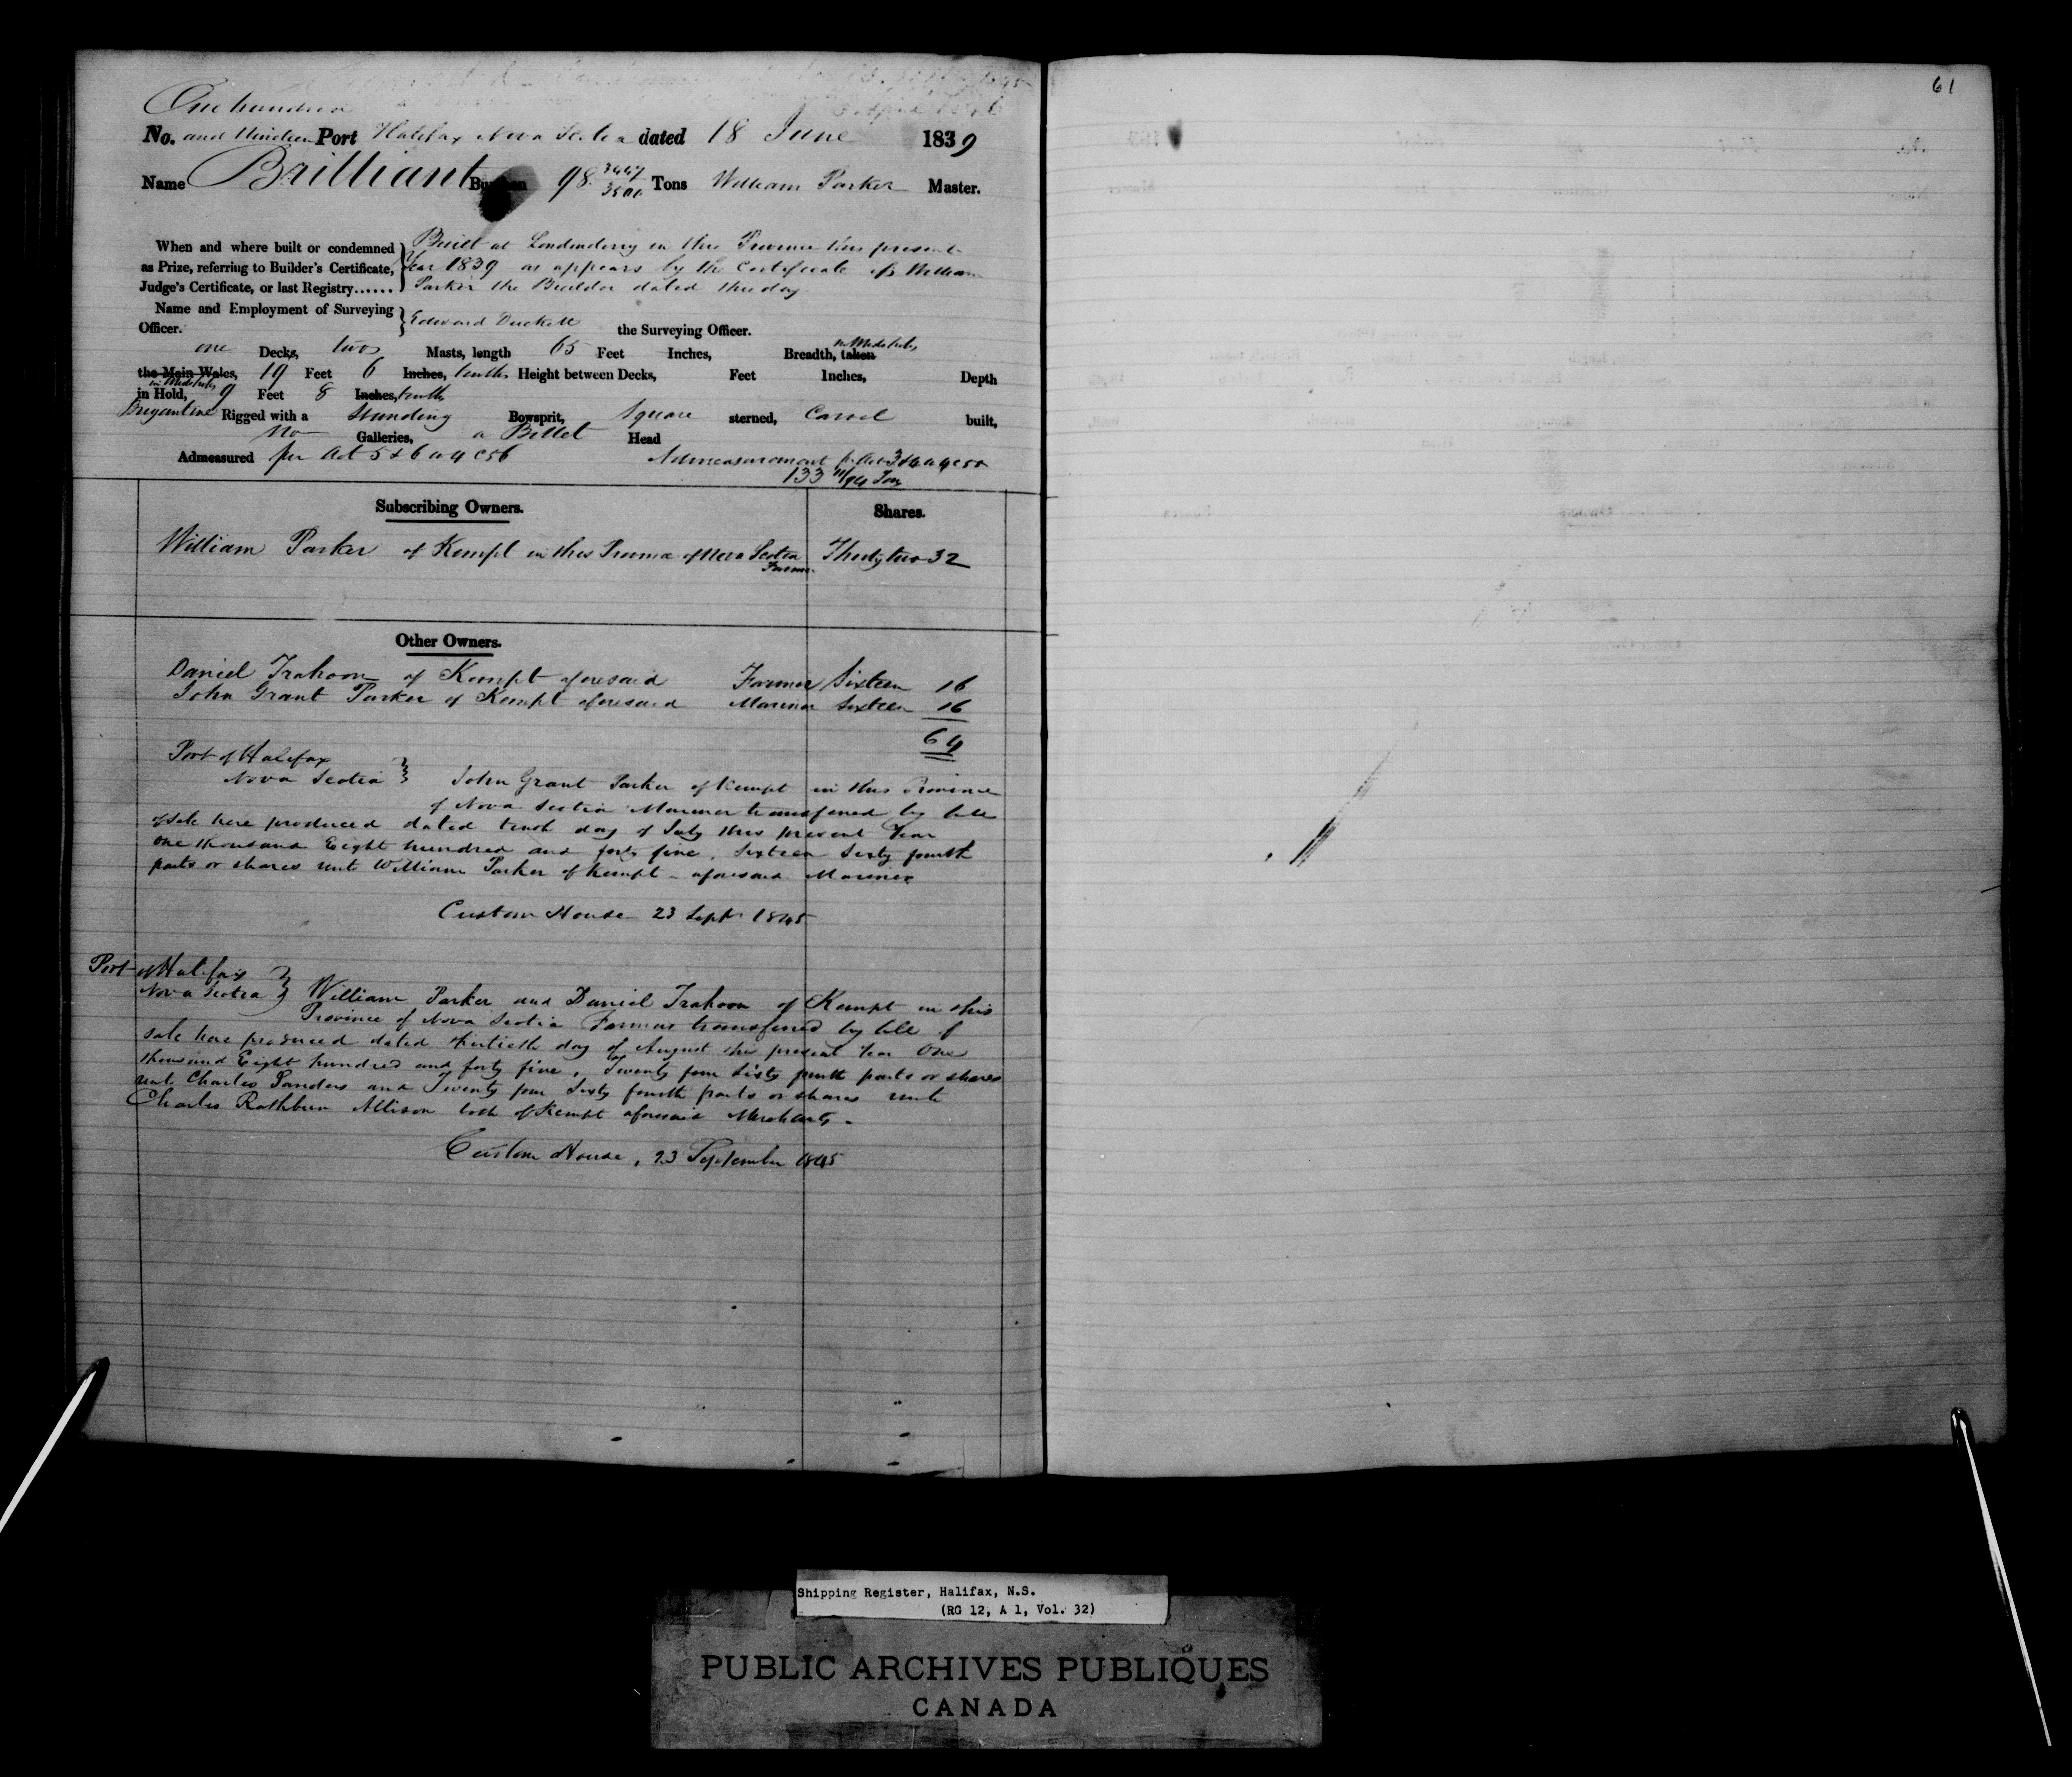 61
One hundred
No. and Nineteen Port Halifax Nova Scotia dated 18 June 1839
Name Brilliant Burthen 98 3447/3500 Tons William Parker Master.
When and where built or condemned
as Prize, referring to Builder's Certificate,
Judge's Certificate, or last Registry......
Built at Londonderry in this Province this present
Year 1839 as appears by the Certificate of William
Parker the Builder dated this day
Name and Employment of Surveying
Officer.
Edward Duckett the Surveying Officer.
one Decks, two Masts, length 65 Feet Inches, Breadth, taken in Midships
the Main Wales, 19 Feet 6 Inches, tenths Height between Decks, Feet Inches, Depth
in Midships
in Hold, 9 Feet 8 Inches, tenths
Brigantine Rigged with a Standing Bowsprit, Square sterned, Carvel built,
No Galleries, a Billet Head
Admeasured per Act 5 & 6 W 4 C 56 Admeasurement pr Act 3 & 4 W 4 C 55
133 11/94 Tons
Subscribing Owners. Shares.
William Parker of Kempt in this Province of Nova Scotia Thirty two 32
Farmer
Other Owners.
Daniel Trahoon of Kempt aforesaid Farmer Sixteen 16
John Grant Parker of Kempt aforesaid Mariner Sixteen 16
64
Port of Halifax
Nova Scotia } John Grant Parker of Kempt in this Province
of Nova Scotia Mariner transferred by bill
of sale here produced dated tenth day of July this present Year
One thousand Eight hundred and forty five, Sixteen Sixty fourth
parts or shares unto William Parker of Kempt aforesaid Mariner
Custom House 23 Sept 1845
Port of Halifax
Nova Scotia } William Parker and Daniel Trahoon of Kempt in this
Province of Nova Scotia Farmers transferred by bill of
sale here produced dated thirtieth day of August this present Year One
thousand Eight hundred and forty five, Twenty four Sixty fourth parts or shares
unto Charles Sanders and Twenty four Sixty fourth parts or shares unto
Charles Rathburn Allison both of Kempt aforesaid Merchants.
Custom House, 23 September 1845
Shipping Register, Halifax, N.S.
(RG 12, A 1, Vol. 32)
PUBLIC ARCHIVES PUBLIQUES
CANADA